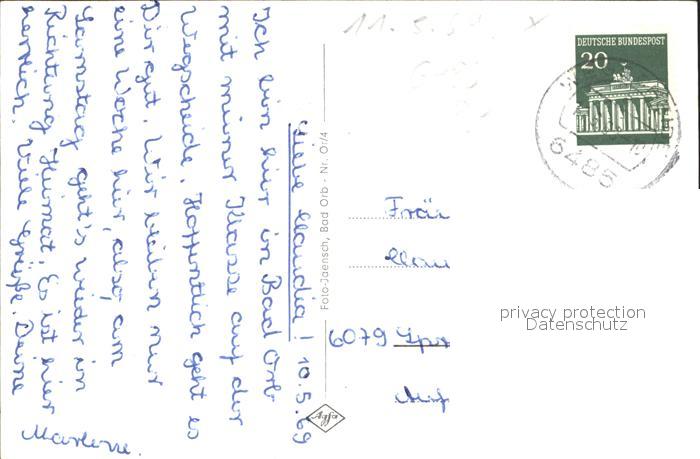 Liebe Claudia! 10.5.69
Ich bin hier in Bad Orb
mit meiner Klasse auf der
Wegscheide. Hoffentlich geht es
Dir gut. Wir bleiben nur
eine Woche hier, also am
Samstag geht's wieder in
Richtung Heimat. Es ist hier
herrlich. Viele Grüße. Deine
Marlene.
Foto-Jaensch, Bad Orb - Nr. Or/4
Agfa
11.5.69
DEUTSCHE BUNDESPOST
20
6485
Fräu
Clau
6079 Spr
privacy protection
Datenschutz